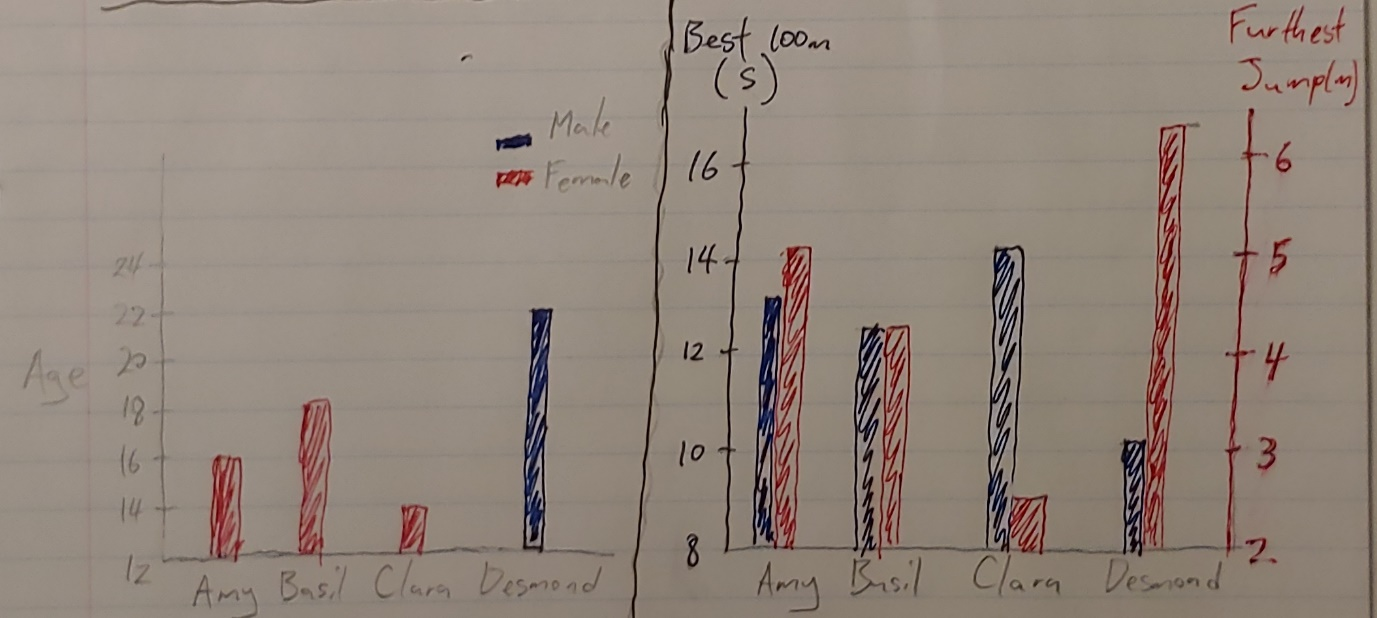 Male
Female
24
22
Age
20
18
16
14
12
Amy Basil Clara Desmond
Best 100m
(s)
16
14
12
10
8
Amy Basil Clara Desmond
Furthest
Jump(m)
6
5
4
3
2